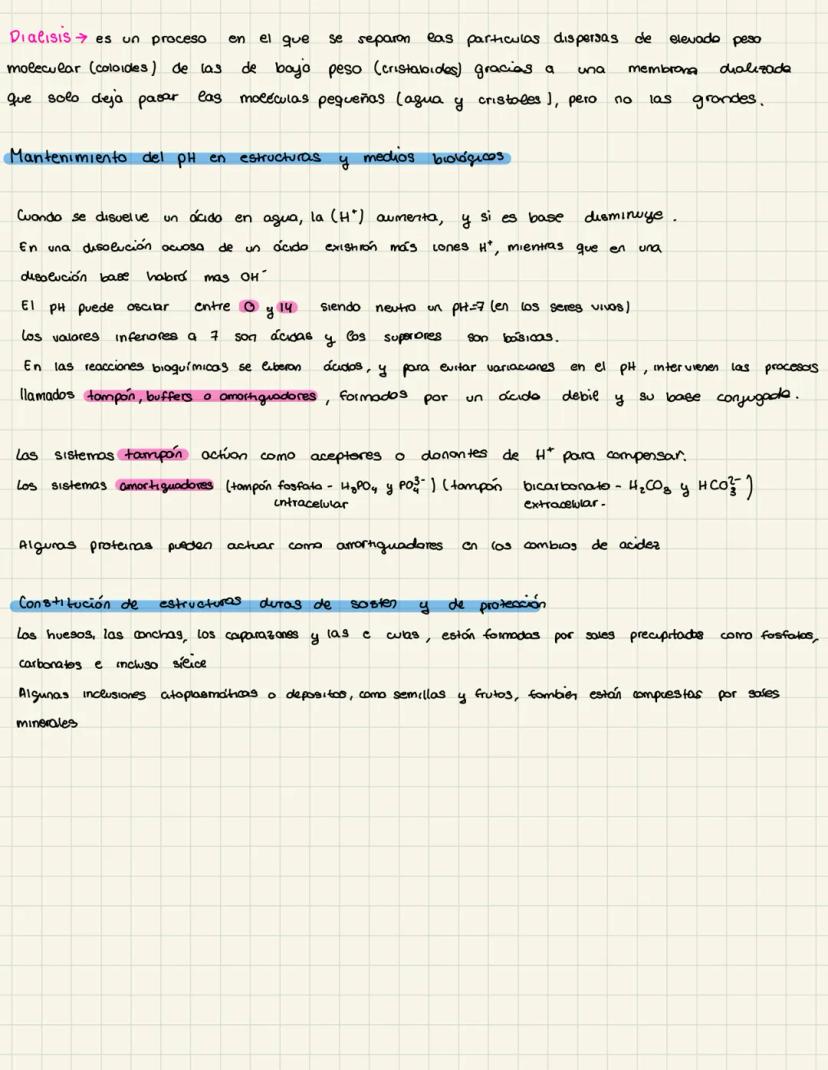 Dialisis → es un proceso en el que se separan las particulas dispersas de elevado peso
molecular (coloides) de las de bajo peso (cristaloides) gracias a una membrana dializada
que solo deja pasar las moléculas pequeñas (agua y cristales), pero no las grandes.
Mantenimiento del pH en estructuras y medios biológicos
Cuando se disuelve un ácido en agua, la (H⁺) aumenta, y si es base disminuye.
En una disolución acuosa de un ácido existirán más iones H⁺, mientras que en una
disolución base habrá mas OH⁻
El pH puede oscilar entre 0 y 14 siendo neutro un pH=7 (en los seres vivos)
Los valores inferiores a 7 son ácidas y los superiores son básicas.
En las reacciones bioquímicas se liberan ácidos, y para evitar variaciones en el pH, intervienen los procesos
llamados tampón, buffers o amortiguadores, formados por un ácido debil y su base conjugada.
Los sistemas tampón actúan como aceptores o donantes de H⁺ para compensar.
Los sistemas amortiguadores (tampón fosfato - H₃PO₄ y PO₄³⁻) (tampón bicarbonato - H₂CO₃ y HCO₃²⁻)
intracelular extracelular.
Algunas proteinas pueden actuar como amortiguadores en los cambios de acidez
Constitución de estructuras duras de sosten y de protección
Los huesos, las conchas, los caparazones y las c culas, están formadas por sales precipitadas como fosfatos,
carbonatos e incluso sílice
Algunas inclusiones citoplasmáticas o depositos, como semillas y frutos, también están compuestas por sales
minerales